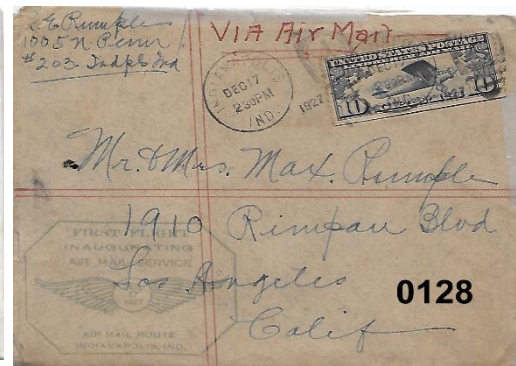 E Rumple
1005 N Penn
#203. Indpls Ind
VIA Air Mail
DEC 17
2 30 PM
IND.
1927
UNITED STATES POSTAGE
10 10
Mr. & Mrs. Max. Rumple
1910 Rimpau Blvd
Los Angeles
Calif
FIRST FLIGHT
INAUGURATING
AIR MAIL SERVICE
1927
AIR MAIL ROUTE
INDIANAPOLIS, IND.
0128